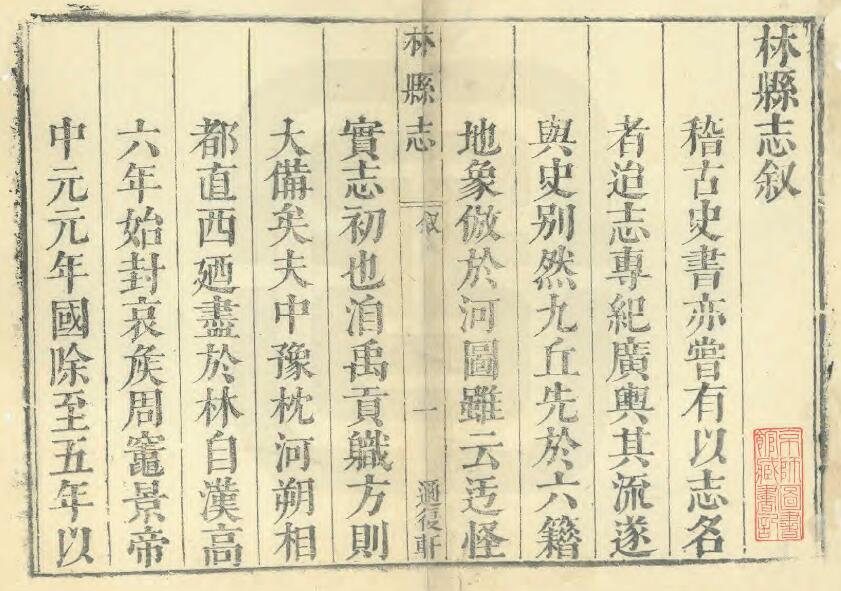 林縣志叙
稽古史書亦嘗有以志名
者迨志專紀廣輿其流遂
與史别然九丘先於六籍
地象倣於河圖雖云迂怪
林縣志
叙
一
實志初也洎禹貢職方則
大備矣夫中豫枕河朔相
都直西廼盡於林自漢高
六年始封哀侯周竈景帝
中元元年國除至五年以